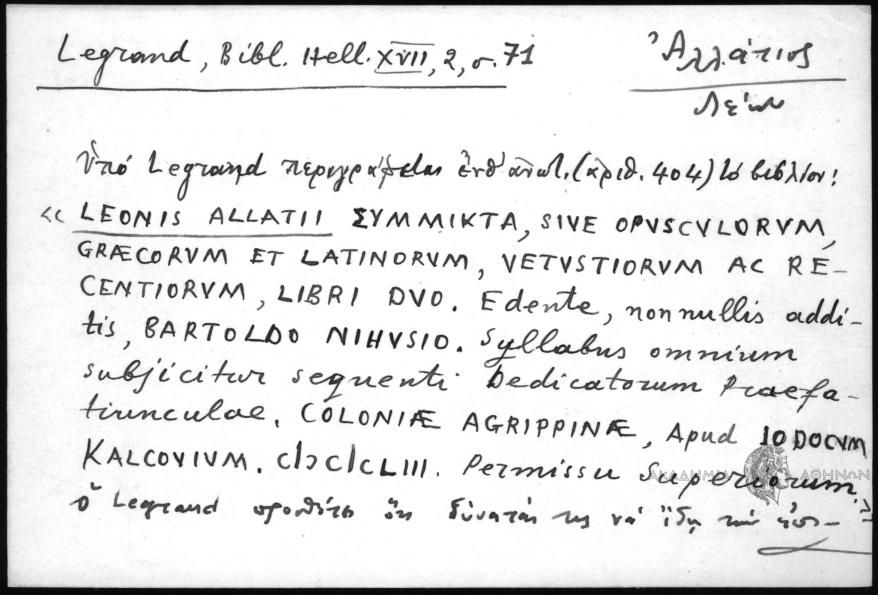 Legrand, Bibl. Hell. XVII, 2, σ. 71
Ἀλλάτιος
Λέων
Ὑπό Legrand περιγράφεται ἐνθ' ἀνωτ. (ἀριθ. 404) τό βιβλίον:
« LEONIS ALLATII ΣΥΜΜΙΚΤΑ, SIVE OPVSCVLORVM,
GRÆCORVM ET LATINORVM, VETVSTIORVM AC RE-
CENTIORVM, LIBRI DVO. Edente, nonnullis addi-
tis, BARTOLDO NIHVSIO. Syllabus omnium
subjicitur sequenti Dedicatorum Praefa-
tiunculae. COLONIÆ AGRIPPINÆ, Apud IODOCVM
KALCOVIVM. cIɔcIcLIII. Permissu Superiorum.»
ΑΚΑΔΗΜΙΑ ΑΘΗΝΩΝ
ὁ Legrand προσθέτει ὅτι δύναταί τις νά ἴδῃ τήν